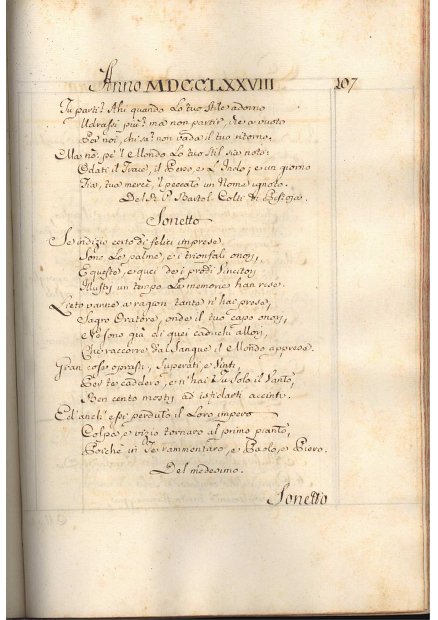 Anno MDCCLXXVIII 207
Tu parti? Ahi quando Lo tuo Stile adorno
Udrassi più? ma non partir, che a vuoto
Per noi, chi sa? non vada il tuo ritorno.
Ma nò: pel Mondo Lo tuo Stil sia noto:
Odati il Trace, il Perso, e L'Indo; e un giorno
Fia, tua mercè, il peccato un Nome ignoto.
Del Sr. Bartol. Colti di Pistoja.
Sonetto
Se indizio certo di felici imprese
Sono Le palme, e i trionfali onori,
E queste, e quei de i prodi Vincitori
Illustri un tempo Le memorie han rese.
Lieto varne a ragion tanto n'hai prese,
Sagro Oratore, onde il tuo capo onori,
Nè sono già di quei caduchi allori,
Che raccorre dal Sangue il Mondo apprese.
Gran cose oprasti, Superati, e Vinti
Per te caddero, e n'hai Tu Solo il Vanto,
Ben cento mostri ad isfidarti accinti.
Ed anch' essi perduto il Loro impero
Colpa, e vizio tornaro al primo pianto,
Poichè in Te rammentaro, e Paolo, e Piero.
Del medesimo.
Sonetto